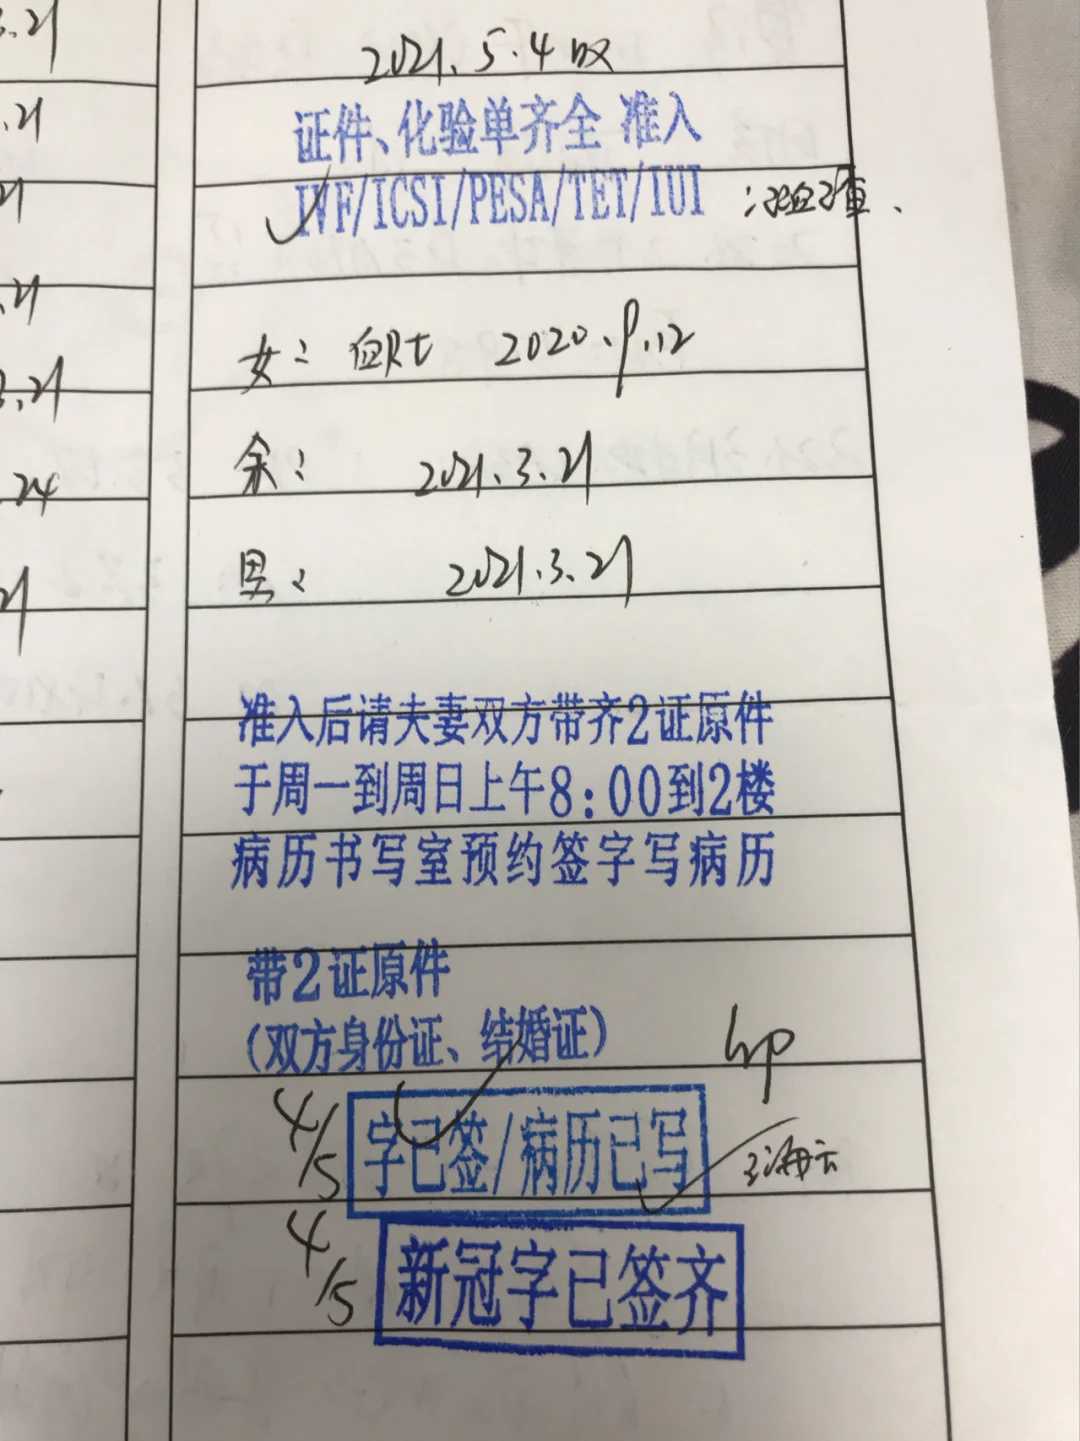 2021.5.4 收
证件、化验单齐全 准入
IVF/ICSI/PESA/TET/IUI
女: 血Rt 2020.9.12
余: 2021.3.21
男: 2021.3.21
准入后请夫妻双方带齐2证原件
于周一到周日上午8:00到2楼
病历书写室预约签字写病历
带2证原件
(双方身份证、结婚证)
4/5 字已签/病历已写
4/5 新冠字已签齐
3.21
.21
21
.21
3.21
.24
21